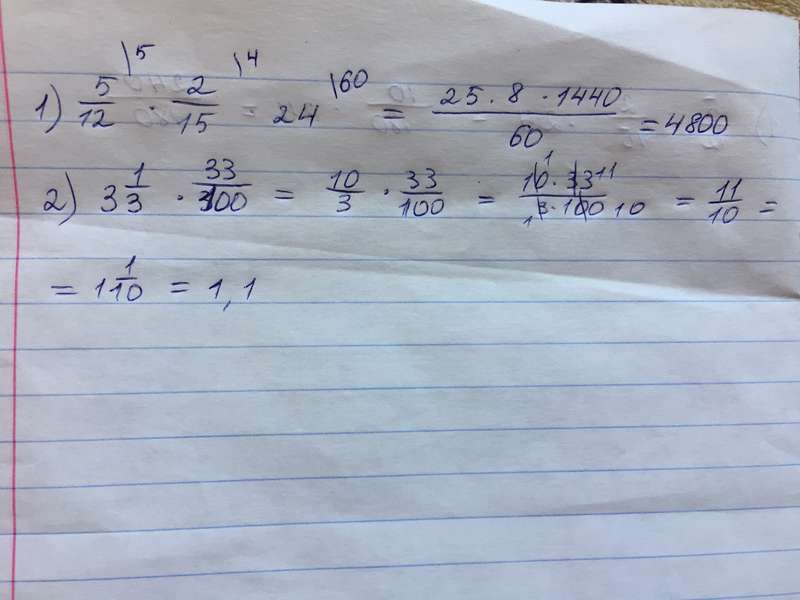 1) 5/12 · 2/15 = 24 = (25 · 8 · 1440)/60 = 4800
2) 3 1/3 · 33/100 = 10/3 · 33/100 = (10 · 33)/(3 · 100) = 11/10 =
= 1 1/10 = 1,1